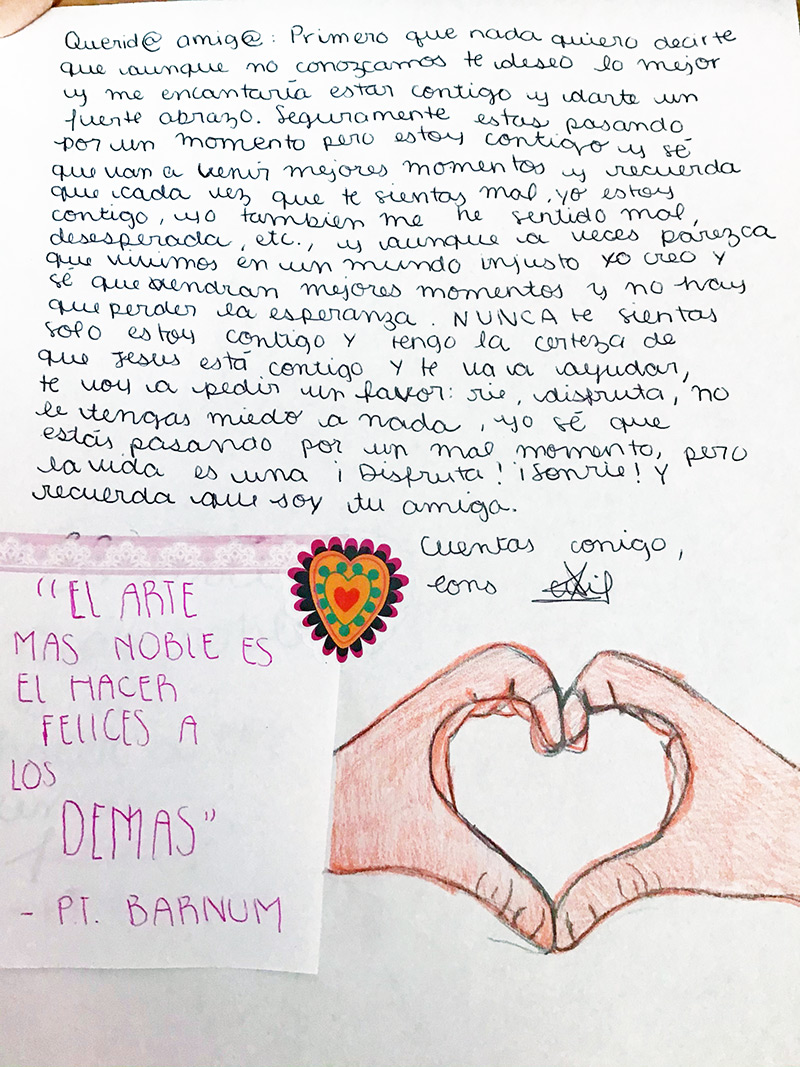 Querid@ amig@: Primero que nada quiero decirte
que aunque no conozcamos te deseo lo mejor
y me encantaría estar contigo y darte un
fuerte abrazo. Seguramente estas pasando
por un momento pero estoy contigo y sé
que van a venir mejores momentos y recuerda
que cada vez que te sientas mal, yo estoy
contigo, yo tambien me he sentido mal,
desesperada, etc., y aunque a veces parezca
que vivimos en un mundo injusto yo creo y
sé que vendran mejores momentos y no hay
que perder la esperanza. NUNCA te sientas
solo estoy contigo y tengo la certeza de
que Jesus está contigo y te va a ayudar,
te voy a pedir un favor: rie, disfruta, no
le tengas miedo a nada, yo sé que
estás pasando por un mal momento, pero
la vida es una ¡Disfruta! ¡Sonrie! y
recuerda que soy tu amiga.
Cuentas conigo,
cons
"EL ARTE
MAS NOBLE ES
EL HACER
FELICES A
LOS
DEMAS"
- P.T. BARNUM